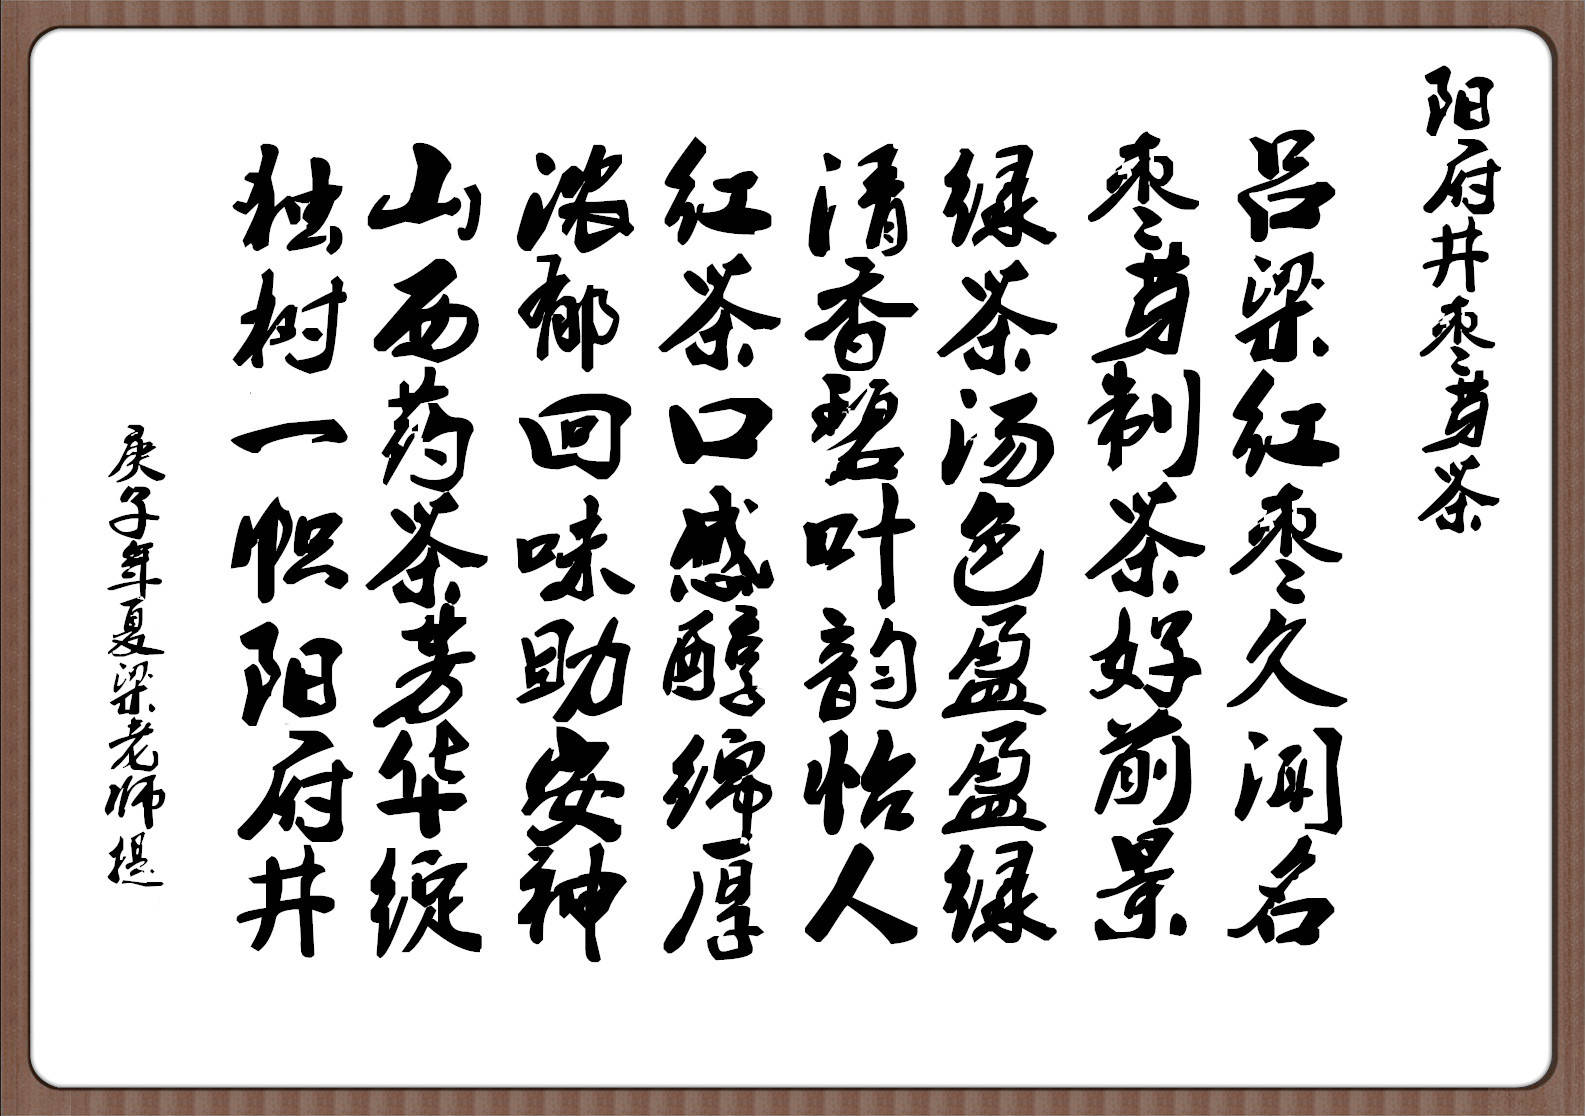 阳府井枣芽茶
吕梁红枣久闻名
枣芽制茶好前景
绿茶汤色盈盈绿
清香碧叶韵怡人
红茶口感醇绵厚
浓郁回味助安神
山西药茶芳华绽
独树一帜阳府井
庚子年夏梁老师提